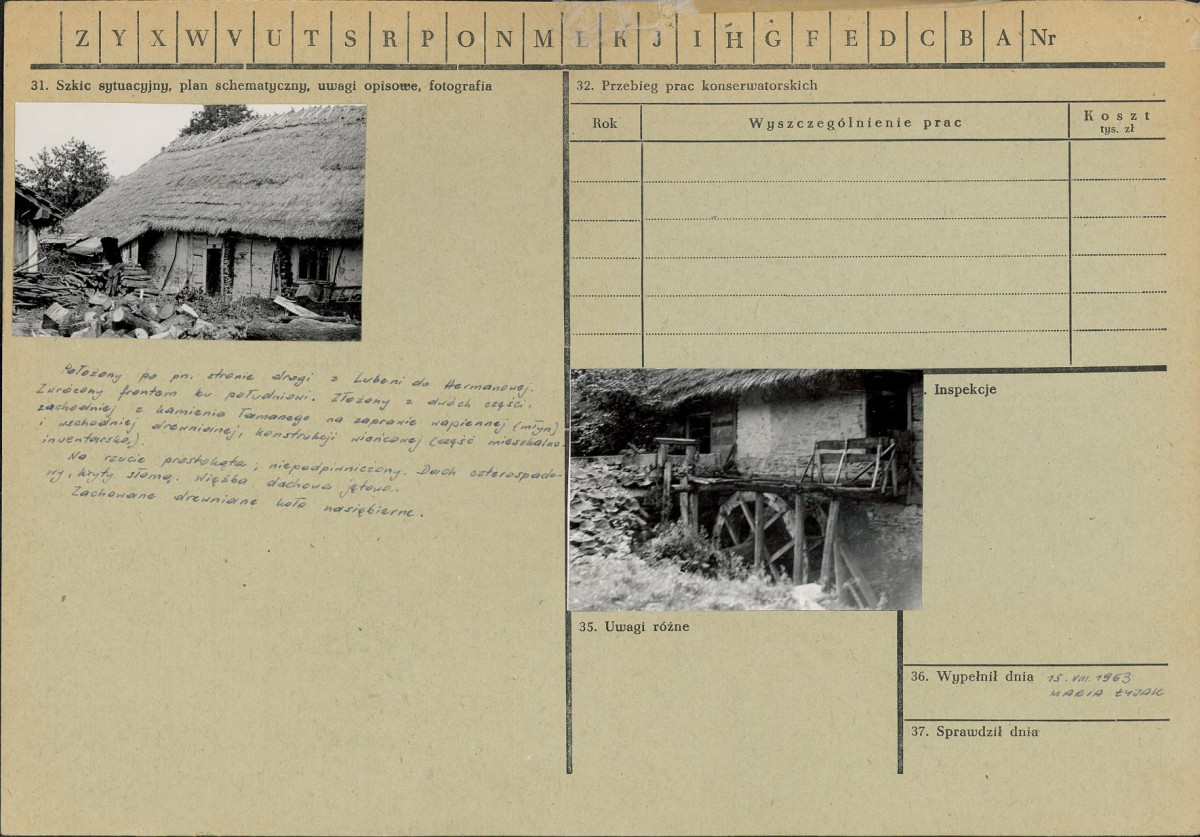 Z Y X W V U T S R P O N M L K J I H G F E D C B A Nr
31. Szkic sytuacyjny, plan schematyczny, uwagi opisowe, fotografia
Położony po pn. stronie drogi z Lubeni do Hermanowej.
Zwrócony frontem ku południowi. Złożony z dwóch części,
zachodniej z kamienia łamanego na zaprawie wapiennej (młyn)
i wschodniej drewnianej, konstrukcji wieńcowej (część mieszkalno-
inwentarska).
Na rzucie prostokąta, niepodpiwniczony. Dach czterospado-
wy, kryty słomą. Więźba dachowa jętowa.
Zachowane drewniane koło nasiębierne.
32. Przebieg prac konserwatorskich
Rok
Wyszczególnienie prac
Koszt
tys. zł
. Inspekcje
35. Uwagi różne
36. Wypełnił dnia 15.VIII.1963
MARIA ŁYŻAK
37. Sprawdził dnia